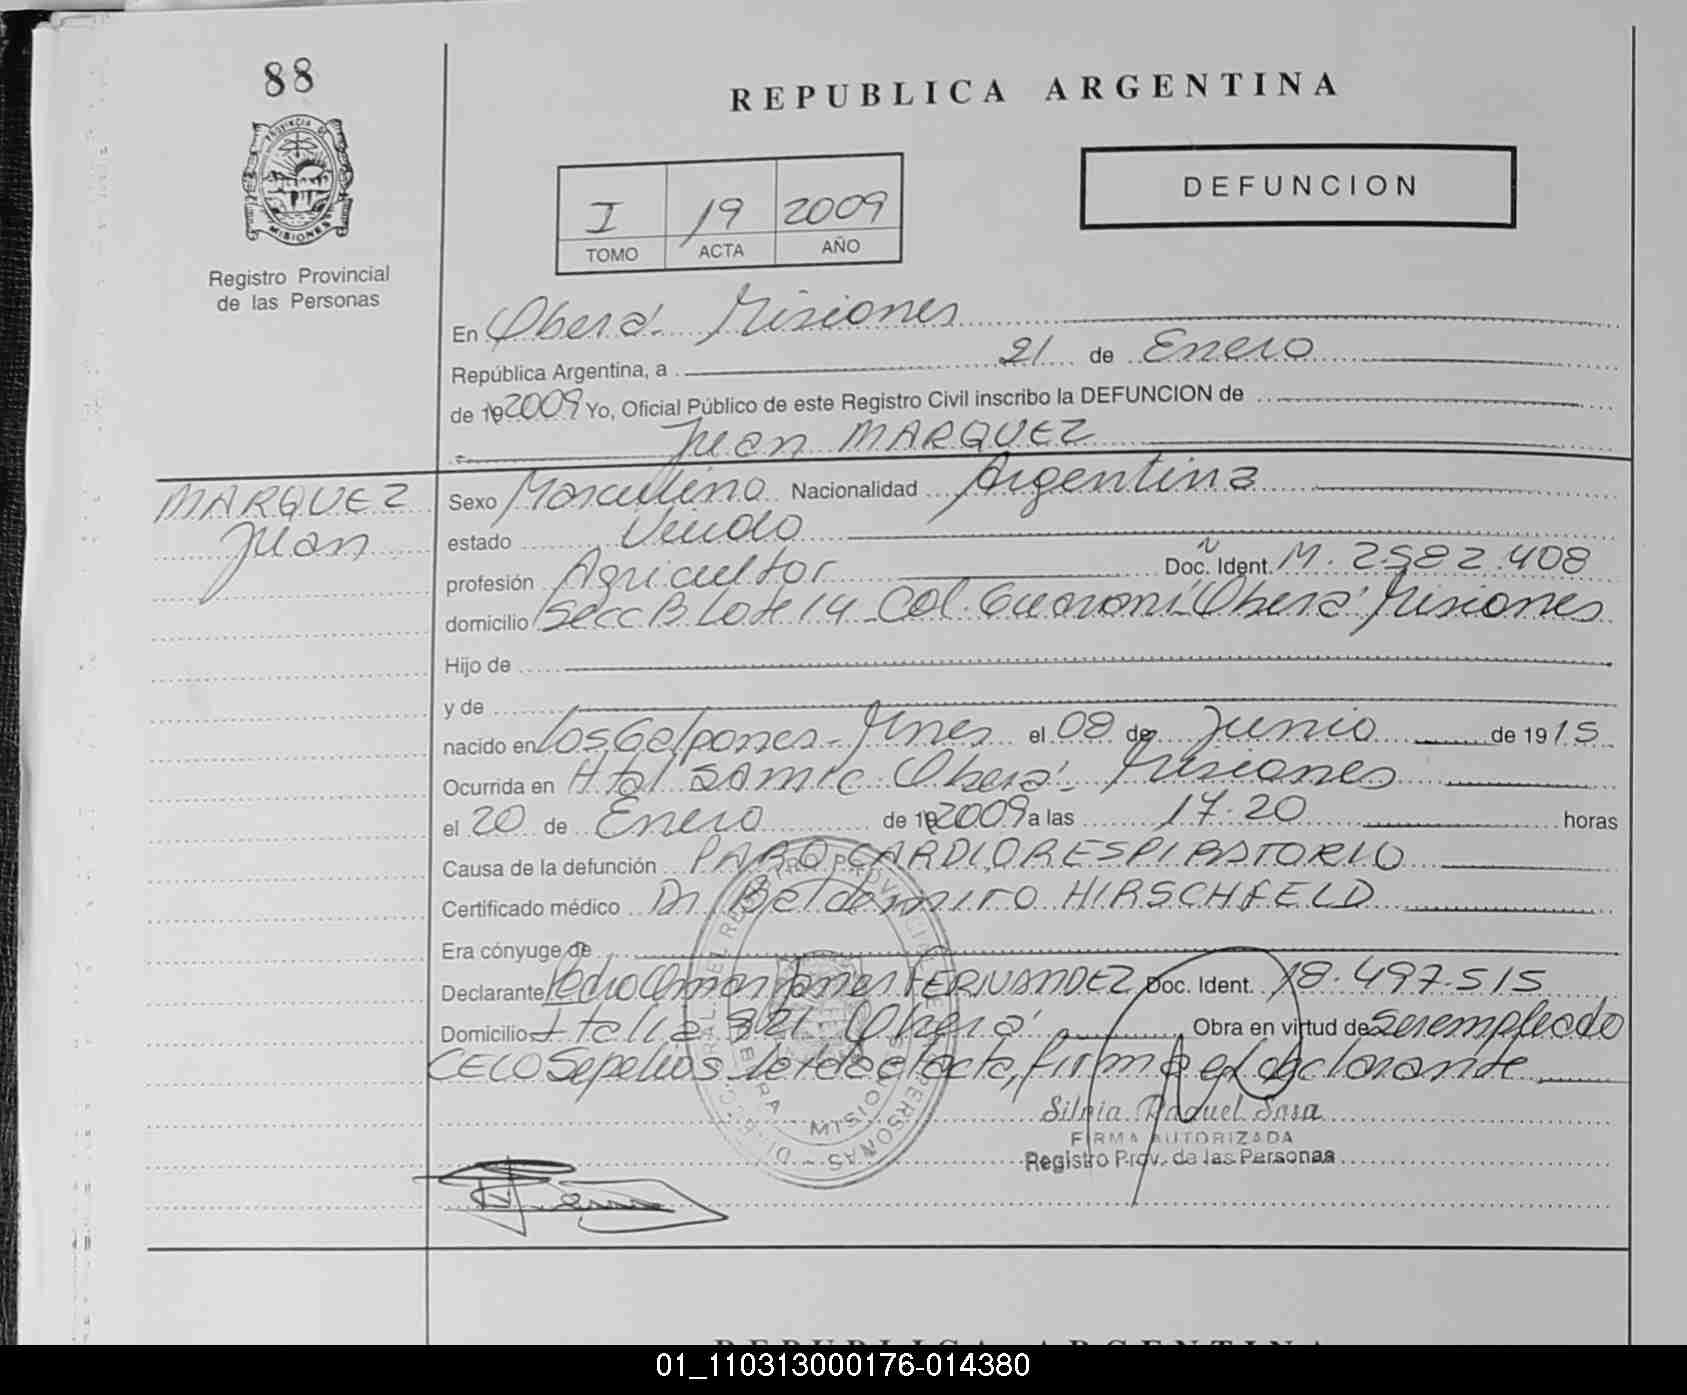 88
REPUBLICA ARGENTINA
PROVINCIA DE
MISIONES
DEFUNCION
I 19 2009
TOMO ACTA AÑO
Registro Provincial
de las Personas
En Oberá. Misiones
República Argentina, a 21 de Enero
de 19 2009 Yo, Oficial Público de este Registro Civil inscribo la DEFUNCION de
Juan MARQUEZ
MARQUEZ
Juan
Sexo Masculino Nacionalidad Argentina
estado Viudo
profesión Agricultor Doc. Ident. M. 2582.408
domicilio Secc B Lote 14 Col. Guarani Oberá Misiones
Hijo de
y de
nacido en Los Galpones - Mnes el 08 de Junio de 1915
Ocurrida en Htal SAMIC Oberá. Misiones
el 20 de Enero de 19 2009 a las 17.20 horas
Causa de la defunción PARO CARDIORESPIRATORIO
Certificado médico Dr. Baldomiro HIRSCHFELD
Era cónyuge de
Declarante Pedro Omar FERNANDEZ Doc. Ident. 18.497.515
Domicilio Italia 321 Oberá Obra en virtud de ser empleado
CELO Sepelios Leida el acta, firma el declarante
Silvia Raquel Sosa
FIRMA AUTORIZADA
Registro Prov. de las Personas
REPUBLICA ARGENTINA
01_110313000176-014380